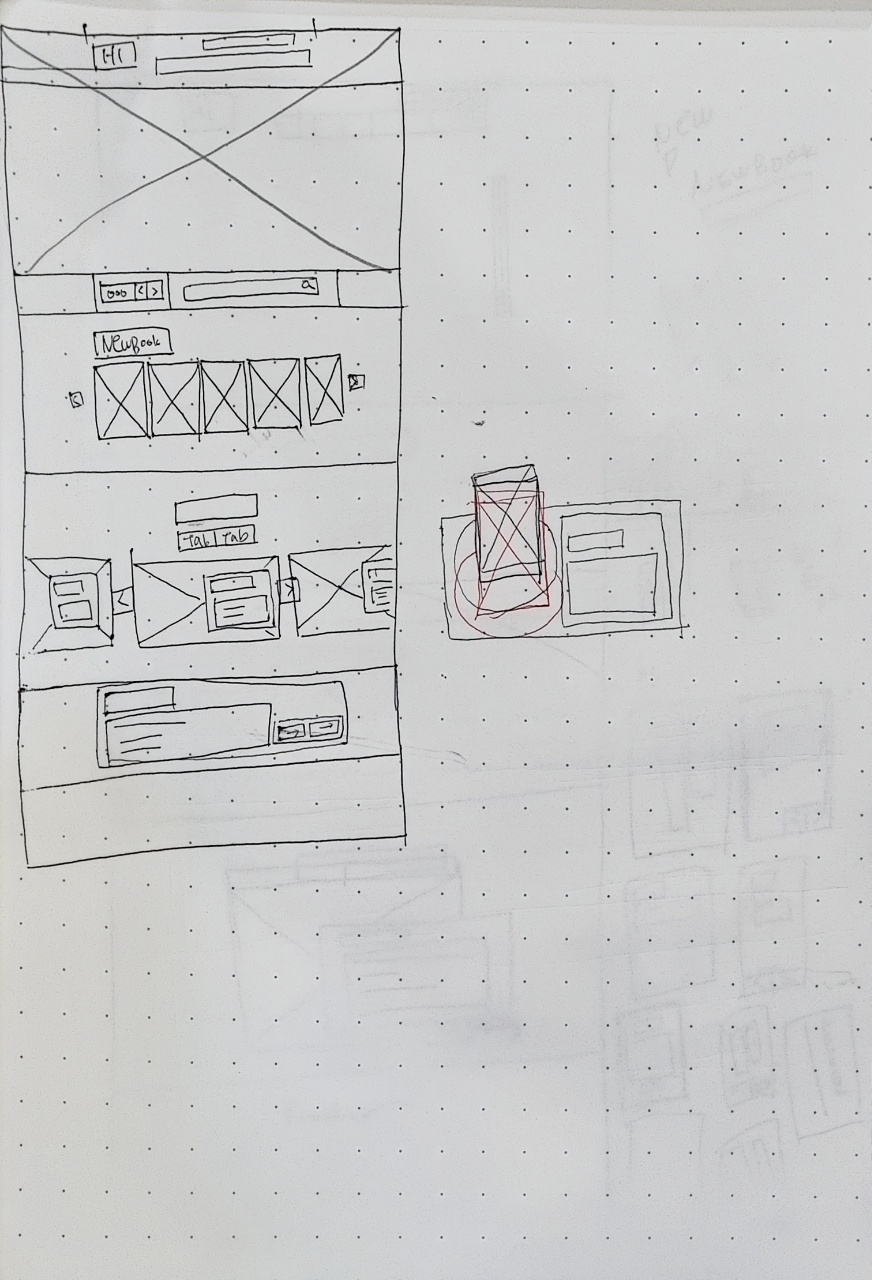 H1
000 < >
NewBook
< >
Tab Tab
< >
New
NewBook